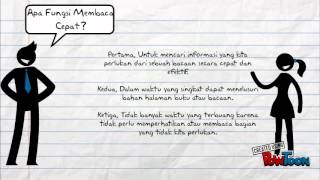 Apa Fungsi Membaca
Cepat?
Pertama, Untuk mencari informasi yang kita
perlukan dari sebuah bacaan secara cepat dan
efektif
Kedua, Dalam waktu yang singkat dapat menelusuri
bahan halaman buku atau bacaan.
Ketiga, Tidak banyak waktu yang terbuang karena
tidak perlu memperhatikan atau membaca bagian
yang tidak kita perlukan.
CREATED USING
PowToon